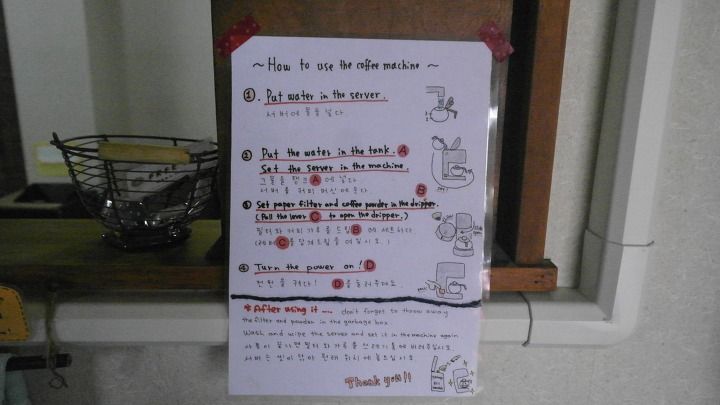 ~ How to use the coffee machine ~
①. Put water in the server.
서버에 물을 넣다.
② Put the water in the tank. A
Set the server in the machine.
그 물을 탱크 A 에 넣다
서버를 커피 머신에 두다.
B
③ Set paper filter and coffee powder in the dripper.
(Pull the lever C to open the dripper.)
필터와 커피 가루를 드립 B 에 세트하다
(레버 C 를
④ Turn the power on! D
전원을 켜다! D 을 눌러주세요.
*After using it .... don't forget to throw away
the filter and powder in the garbage box
Wash and wipe the server and set it in the machine again
사용이 끝나면 필터와 가루를 쓰레기통에 버려주십시오
서버는 씻어 닦아 원래 위치에
Thank you!!
FREE